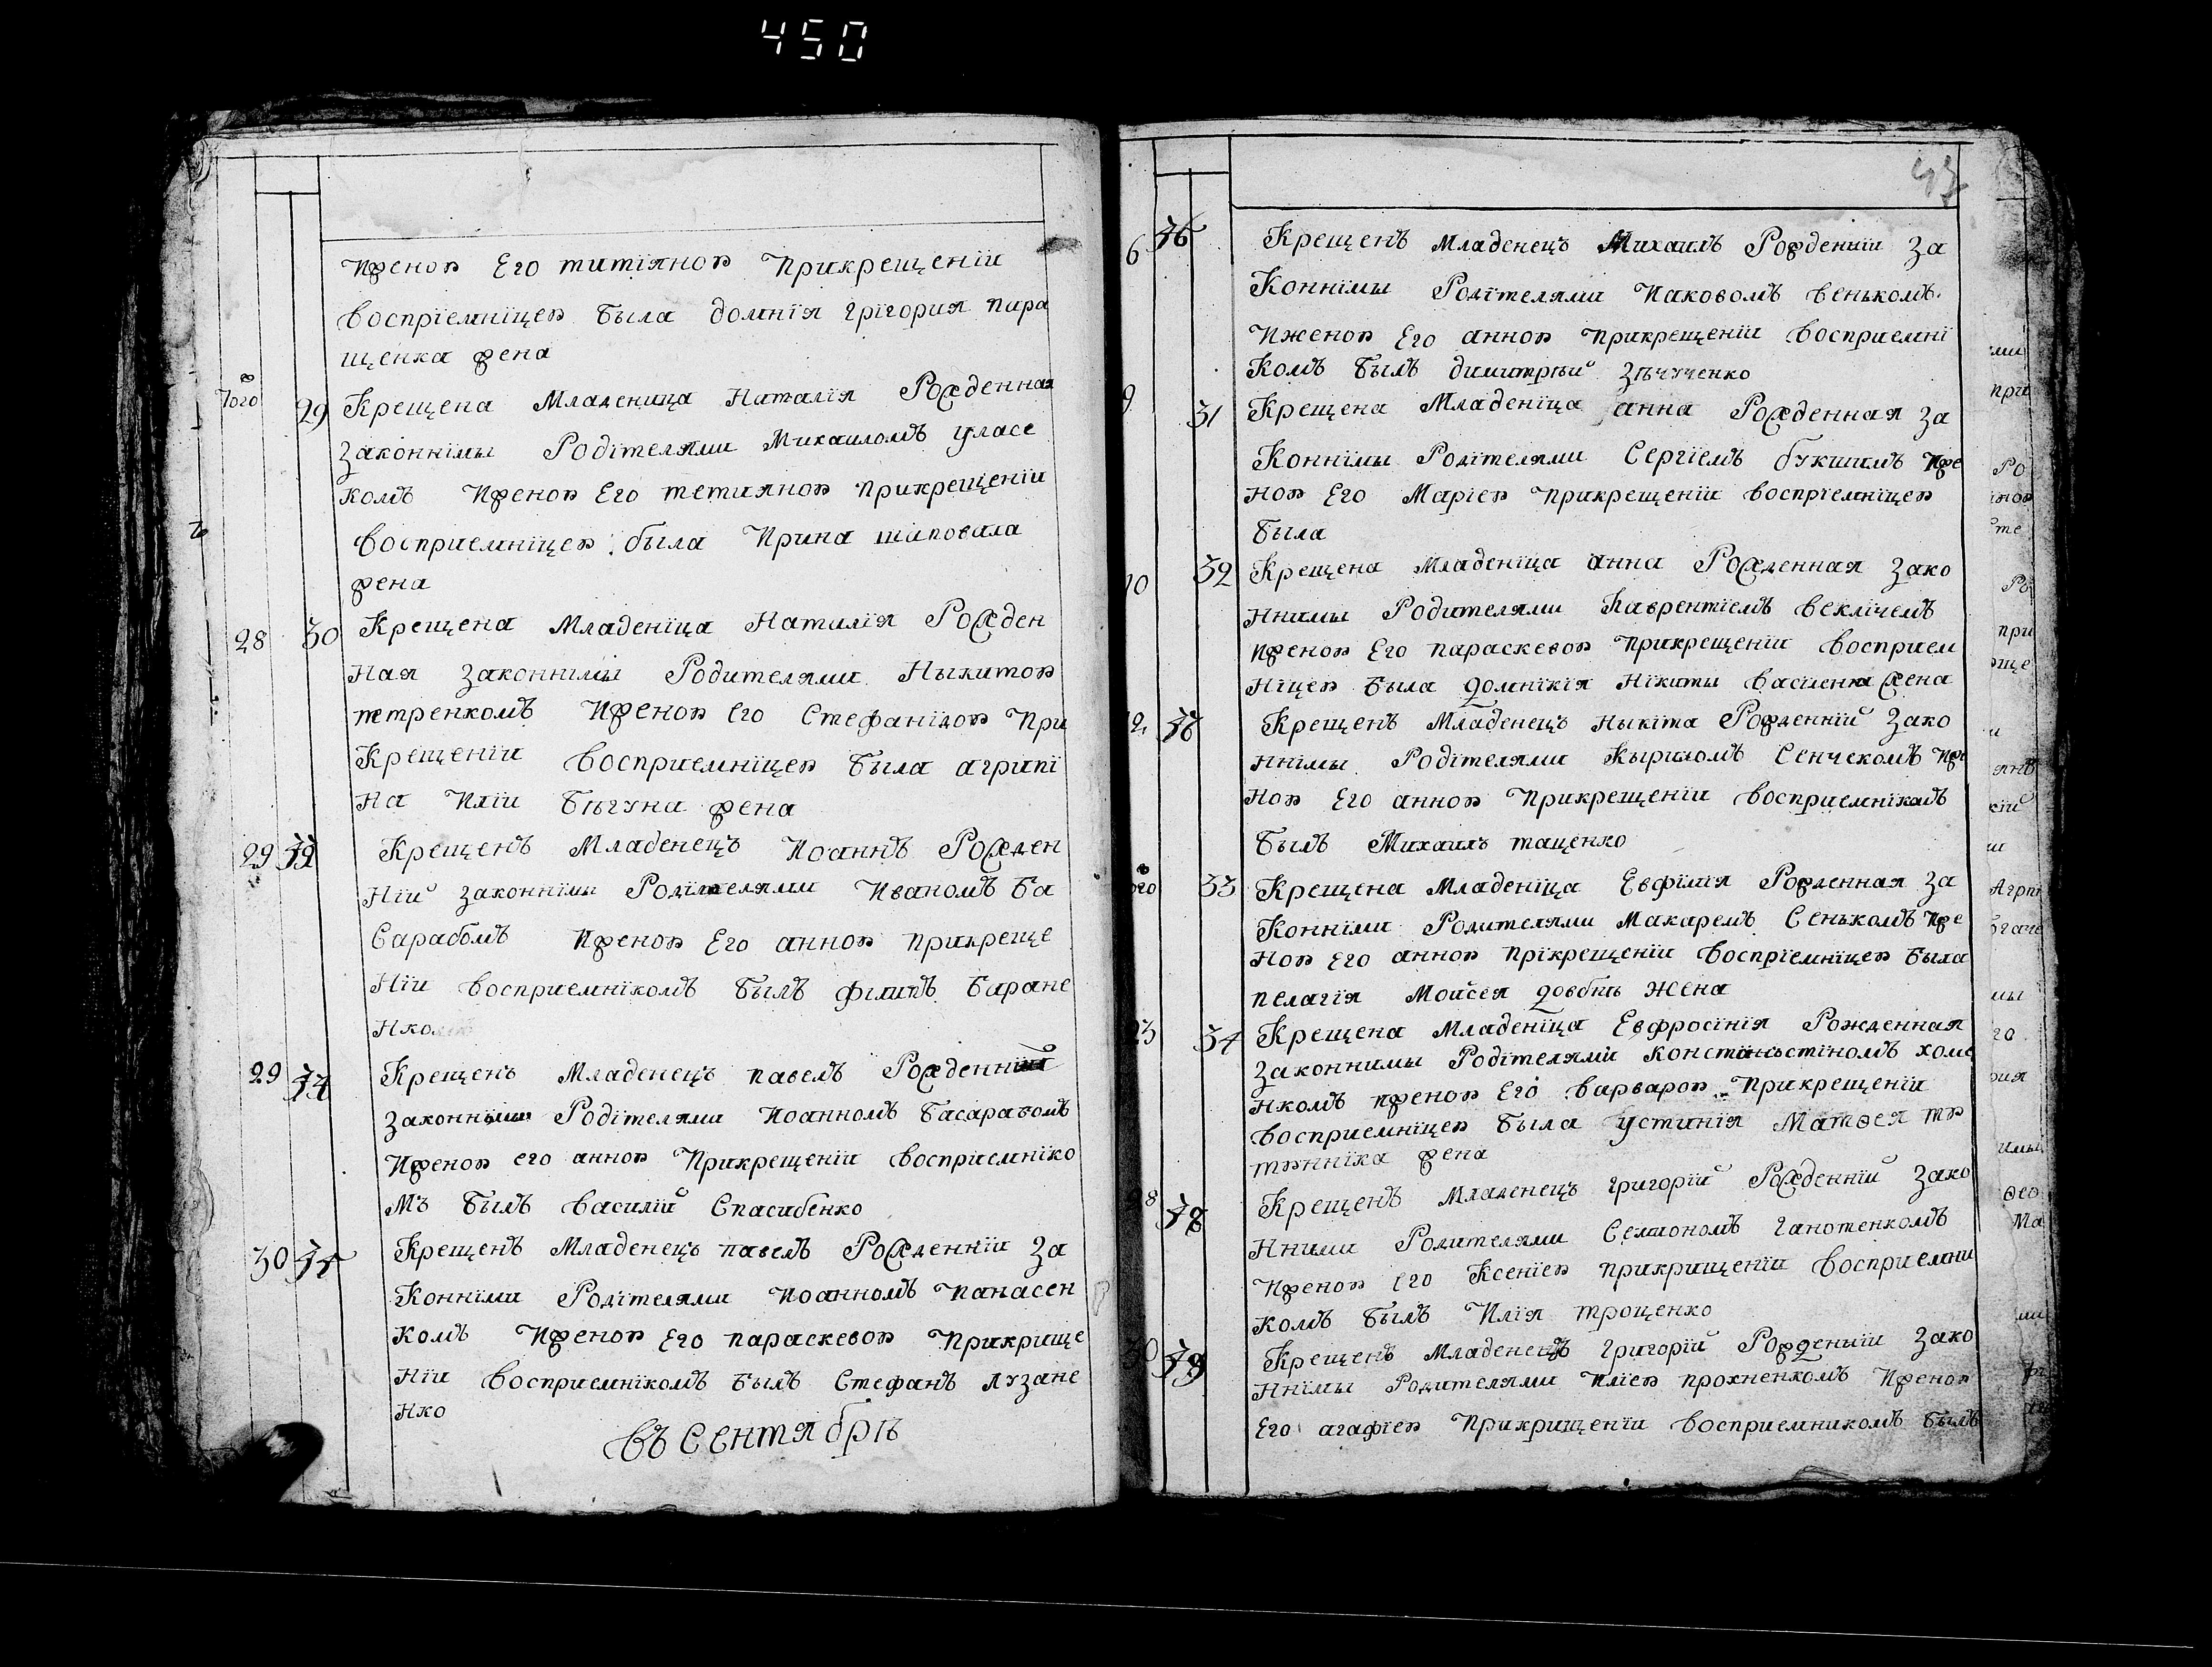 450
Иженою Его титіяною Прикрещеніи
воспріемніцею была домнія грігория пара
щенка жена
того 29 Крещена Младеница Наталія Рожденная
Законнімы Родітелями Михаиломъ уласе
комъ Иженою Его тетияною прикрещеніи
восприемніцею была Ирина шаповала
жена
28 30 Крещена Младеніца Наталія Рожден
ная законнімы Родителями Ныкитою
петренкомъ Иженою Его Стефанідою При
Крещеніи восприемніцею была агрипі
на Иліи Бѣгуна жена
29 Крещенъ Младенецъ Иоаннъ Рожден
ній законнімы Родітелями Иваномъ Ба
сарабомъ Иженою Его анною прикреще
ніи восприемнікомъ былъ філипъ Баране
нко
29 34 Крещенъ Младенецъ павелъ Рожденний
законнімы Родітелями Иоанномъ Басарабомъ
Иженою его анною Прикрещеніи восприемніко
мъ былъ василій Спасибенко
30 Крещенъ Младенецъ павелъ Рожденніи за
Конніми Родітелями Иоанномъ Панасен
комъ Иженою Его параскевою Прикрище
ніи восприемнікомъ былъ Стефанъ лузане
нко
въ Сентябрѣ
6 36 Крещенъ Младенецъ Михаилъ Рожденніи за
Коннімы Родітелями Иаковомъ венькомъ
Иженою Его анною прикрещеніи восприемні
Комъ былъ димитрѣй Зѣчученко
9 31 Крещена Младеніца анна Рожденная за
Коннімы Родітелями Сергіемъ букшимъ Иже
ною Его Маріею прикрещеніи воспріемніцею
была
10 32 Крещена Младеніца анна Рожденная Зако
ннимы Родителями Лаврентіемъ веклічемъ
Иженою Его параскевою прикрещеніи восприем
ніцею была домнікія Нікиты василенка жена
12 Крещенъ Младенецъ Ныкіта Рожденній Зако
ннімы Родітелями Кыриломъ Сенчекомъ Иже
ною Его анною Прикрещеніи восприемнікомъ
былъ Михаилъ таценко
того 33 Крещена Младеніца Евфімія Рожденная За
Конніми Родителями Макаремъ Сенькомъ Иже
ною Его анною прікрещеніи воспріемніцею была
пелагія Мойсея довбнѣ жена
23 34 Крещена Младеніца Евфросінія Рожденная
Законнимы Родітелями Констанстіномъ хоме
нкомъ Иженою Его варварою Прикрещеніи
восприемніцею была устинія Матѳея тю
тюнніка жена
28 38 Крещенъ Младенецъ григорій Рожденній Зако
нними Родителями Семіономъ ганотенкомъ
Иженою Его Ксеніею прикрищеніи восприемни
комъ былъ Илія троценко
30 39 Крещенъ Младенецъ Григорій Рожденыіи Зако
ннімы Родителями Иліею прохненкомъ Иженою
Его агафіею Прикрищеніи восприемникомъ былъ